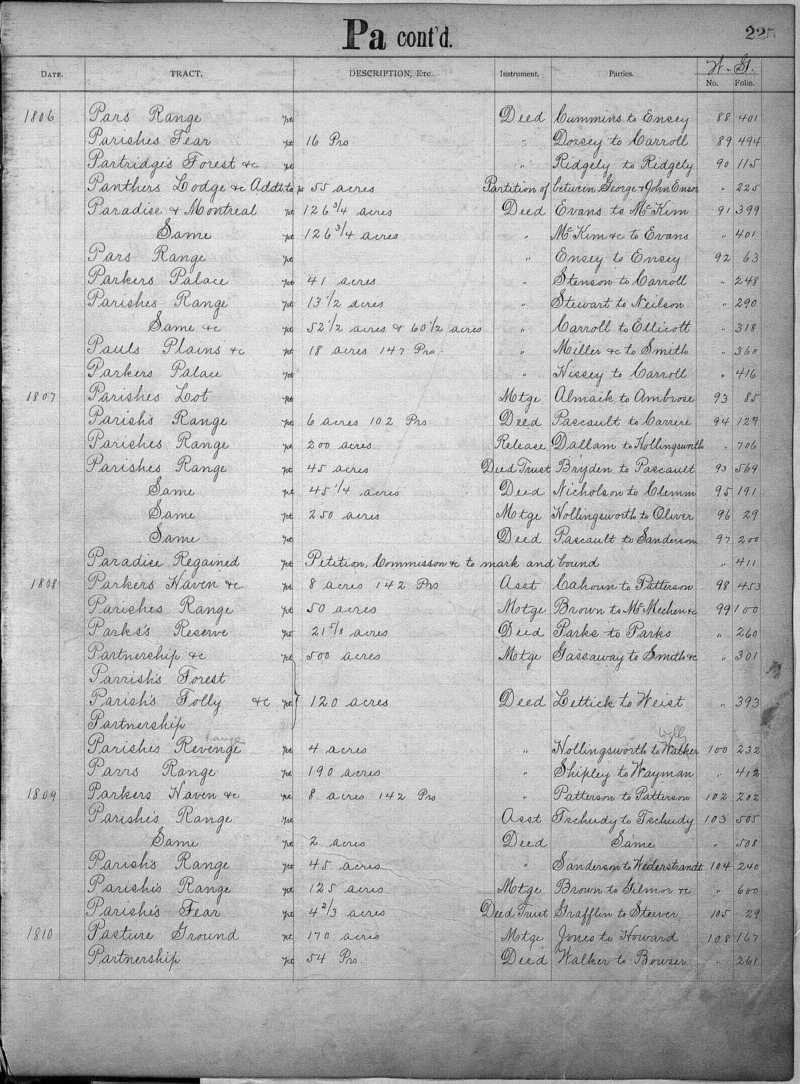 Pa cont'd. 225
W. G.
DATE. TRACT. DESCRIPTION, ETC. Instrument. Parties. No. Folio.
1806 Pars Range pt Deed Cummins to Ensey 88 401
Parishes Fear pt 16 Prs " Dorsey to Carroll 89 494
Partridge's Forest &c pt " Ridgely to Ridgely 90 115
Panthers Lodge & Addt to pt 55 acres Partition of between George & John Ensor " 225
Paradise & Montreal pt 126 3/4 acres Deed Evans to McKim 91 399
Same pt 126 3/4 acres " McKim &c to Evans " 401
Pars Range pt " Ensey to Ensey 92 63
Parkers Palace pt 41 acres " Stenson to Carroll " 248
Parishes Range pt 13 1/2 acres " Stewart to Neilson " 290
Same &c pt 52 1/2 acres & 60 1/2 acres " Carroll to Ellicott " 318
Pauls Plains &c pt 18 acres 147 Prs. " Miller &c to Smith " 360
Parkers Palace pt " Hissey to Carroll " 416
1807 Parishes Lot pt Mtge Almack to Ambrose 93 85
Parish's Range pt 6 acres 102 Prs Deed Pascault to Carrere 94 129
Parishes Range pt 200 acres Release Dallam to Hollingsworth " 706
Parishes Range pt 45 acres Deed Trust Bryden to Pascault 93 569
Same pt 45 1/4 acres Deed Nicholson to Clemm 95 191
Same pt 250 acres Mtge Hollingsworth to Oliver 96 29
Same pt Deed Pascault to Sanderson 97 200
Paradise Regained pt Petition, Commisson &c to mark and bound " 411
1808 Parkers Haven &c pt 8 acres 142 Prs Asst Cahoun to Patterson 98 453
Parishes Range pt 50 acres Motge Brown to McMechen &c 99 100
Parks's Reserve pt 21 5/8 acres Deed Parks to Parks " 260
Partnership &c pt 500 acres Motge Gassaway to Smith &c " 301
Parrish's Forest
Parish's Folly &c pt 120 acres Deed Lettick to Weist " 393
Partnership
Range Welly
Parishes Revenge pt 4 acres " Hollingsworth to Walker 100 232
Parrs Range pt 190 acres " Shipley to Wayman " 412
1809 Parkers Haven &c pt 8 acres 142 Prs " Patterson to Patterson 102 202
Parishe's Range pt Asst Tschudy to Tschudy 103 505
Same pt 2 acres Deed Same " 508
Parish's Range pt 45 acres " Sanderson to Wederstrandt 104 240
Parish's Range pt 125 acres Motge Brown to Gilmor &c " 600
Parishe's Fear pt 4 2/3 acres Deed Trust Grafflin to Steever 105 29
1810 Pasture Ground pt 170 acres Mtge Jones to Howard 108 167
Partnership pt 54 Prs. Deed Walker to Bowser " 261